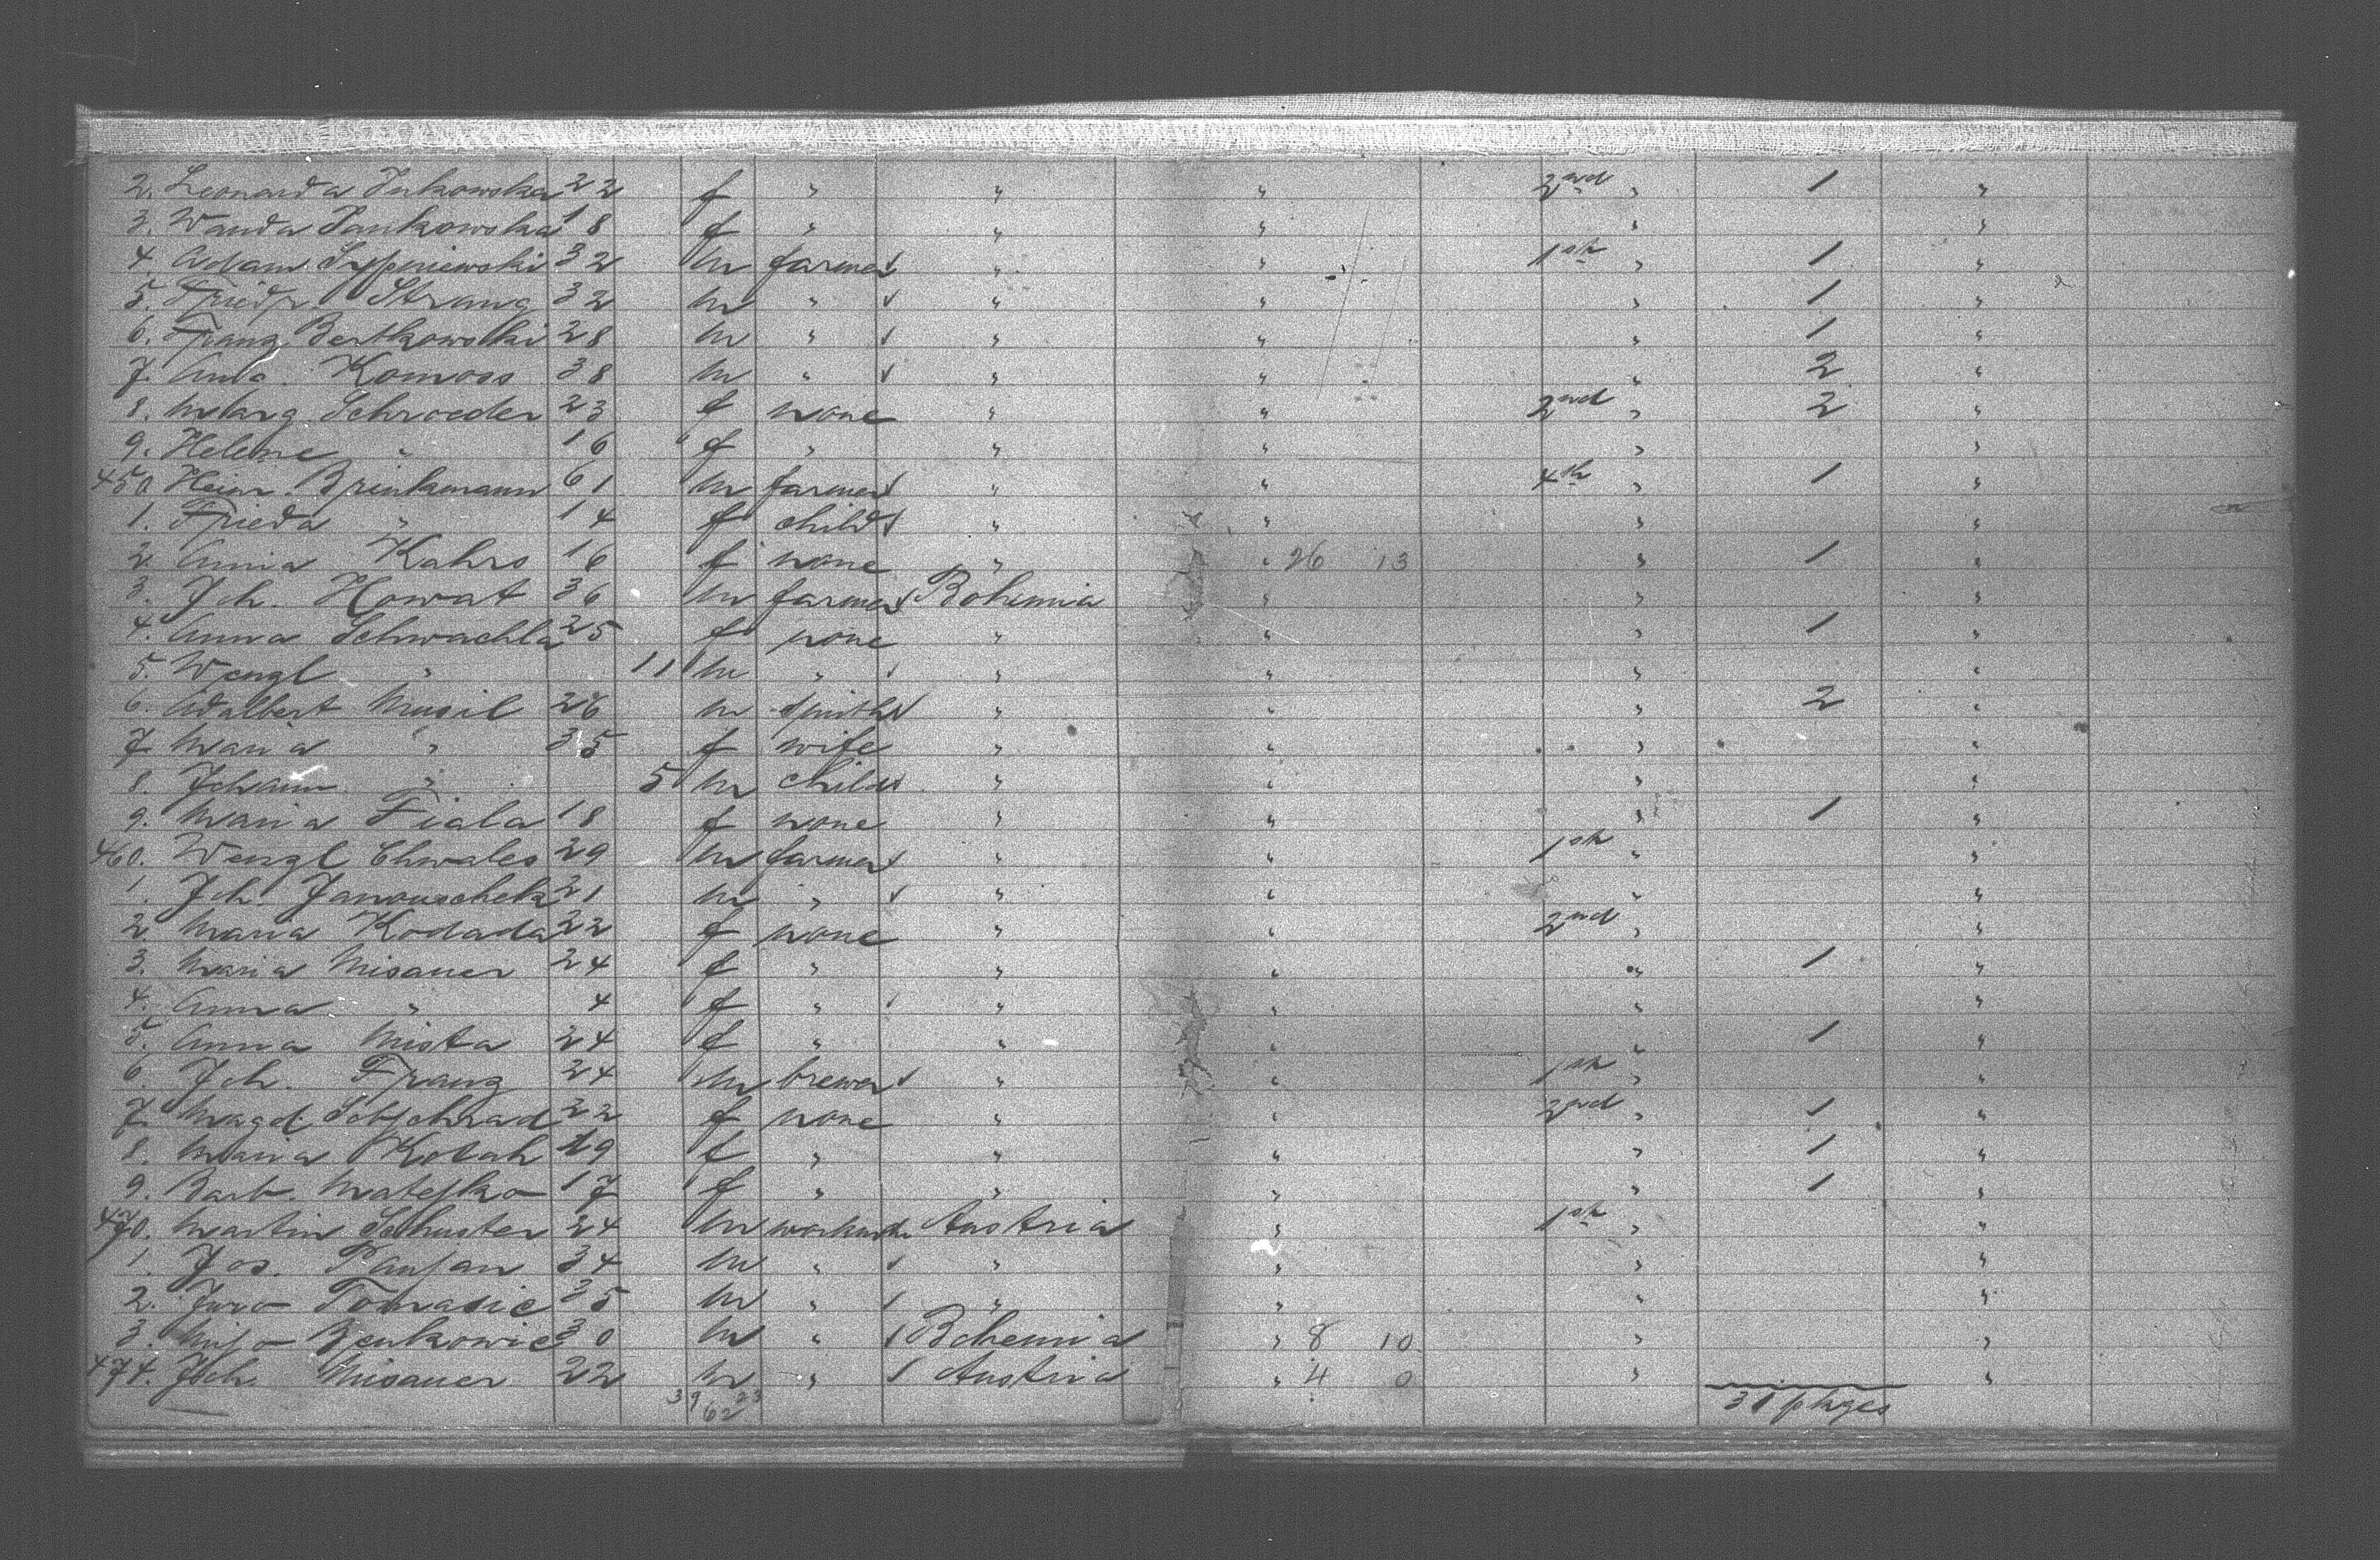 2. Leonarda Jukowska 22 f " " " 2nd " 1 "
3. Wanda Pankowska 18 f " " " " "
4. Adam Sypniewski 32 m farmer " " 1st " 1 "
5. Friedr. Strung 32 m " " " " 1 "
6. Franz Bertkowski 28 m " " " " 1 "
7. Aug. Komoss 38 m " " " " 2 "
8. Marg. Schroeder 23 f none " " 2nd " 2 "
9. Helene " 16 f " " " " "
450 Heinr. Brinkmann 61 m farmer " " 4th " 1 "
1. Frieda " 14 f child " " " "
2. Anna Kahrs 16 f none " " 26 13 " 1 "
3. Joh. Howat 36 m farmer Bohemia " " "
4. Anna Schwachla 25 f none " " " 1 "
5. Wenzl " 11 m " " " " "
6. Adalbert Musil 26 m smith " " " 2 "
7. Maria " 35 f wife " " " "
8. Johann " 5 m child " " " "
9. Maria Fiala 18 f none " " " 1 "
460. Wenzl Chwales 29 m farmer " " 1st " "
1. Joh. Janouschek 21 m " " " " "
2. Maria Kodada 22 f none " " 2nd " "
3. Maria Misauer 24 f " " " " 1 "
4. Anna " 4 f " " " " "
5. Anna Mista 24 f " " " " 1 "
6. Joh. Franz 24 m brewer " " 1st " "
7. Magd. 22 f none " " 2nd " 1 "
8. Maria Kolah 19 f " " " " 1 "
9. Barb. Matejko 17 f " " " " 1 "
470. Martin Schuster 24 m Austria " 1st " "
1. Jos. Paujan 34 m " " " " "
2. Juro Tomasic 35 m " " " " "
3. Mijo Benkowic 30 m " Bohemia " 8 10 " "
474. Joh. Misauer 22 m " Austria " 4 0 " "
39 23
62
31 pkges